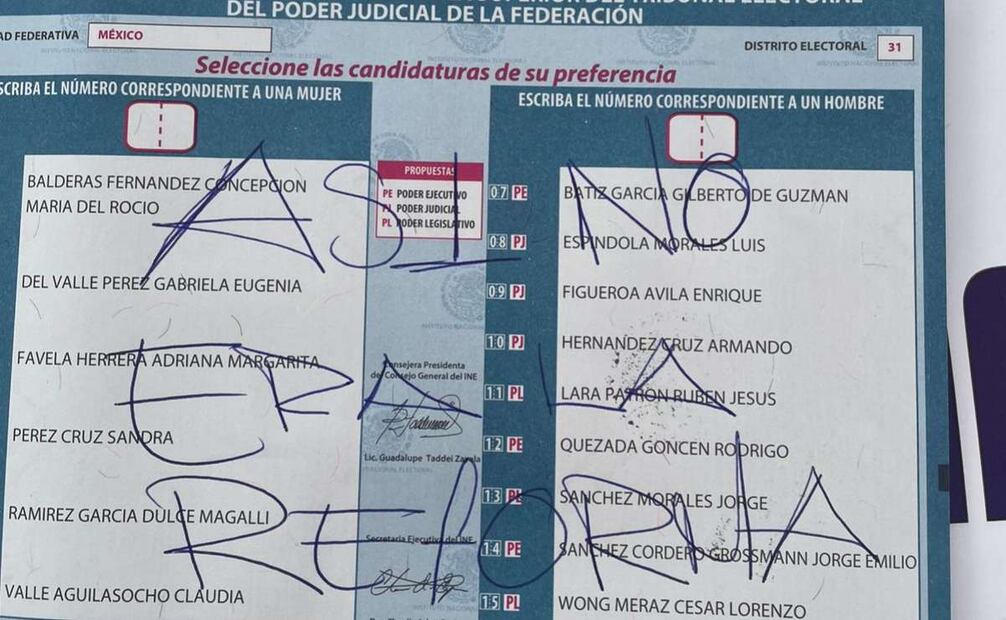 DEL PODER JUDICIAL DE LA FEDERACIÓN
AD FEDERATIVA MÉXICO
DISTRITO ELECTORAL 31
Seleccione las candidaturas de su preferencia
SCRIBA EL NÚMERO CORRESPONDIENTE A UNA MUJER
ESCRIBA EL NÚMERO CORRESPONDIENTE A UN HOMBRE
BALDERAS FERNANDEZ CONCEPCION
MARIA DEL ROCIO
DEL VALLE PEREZ GABRIELA EUGENIA
FAVELA HERRERA ADRIANA MARGARITA
PEREZ CRUZ SANDRA
RAMIREZ GARCIA DULCE MAGALLI
VALLE AGUILASOCHO CLAUDIA
PROPUESTAS
PE PODER EJECUTIVO
PJ PODER JUDICIAL
PL PODER LEGISLATIVO
Consejera Presidenta
del Consejo General del INE
Lic. Guadalupe Taddei Zavala
Secretaria Ejecutiva del INE
07 PE BATIZ GARCIA GILBERTO DE GUZMAN
08 PJ ESPINDOLA MORALES LUIS
09 PJ FIGUEROA AVILA ENRIQUE
10 PJ HERNANDEZ CRUZ ARMANDO
11 PL LARA PATRON RUBEN JESUS
12 PE QUEZADA GONCEN RODRIGO
13 PL SANCHEZ MORALES JORGE
14 PE SANCHEZ CORDERO GROSSMANN JORGE EMILIO
15 PL WONG MERAZ CESAR LORENZO
ASI NO
ERA LA
REFORMA